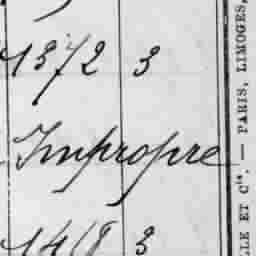 1372 3
Impropre
1418 3
LLE ET Cie. — PARIS, LIMOGES,